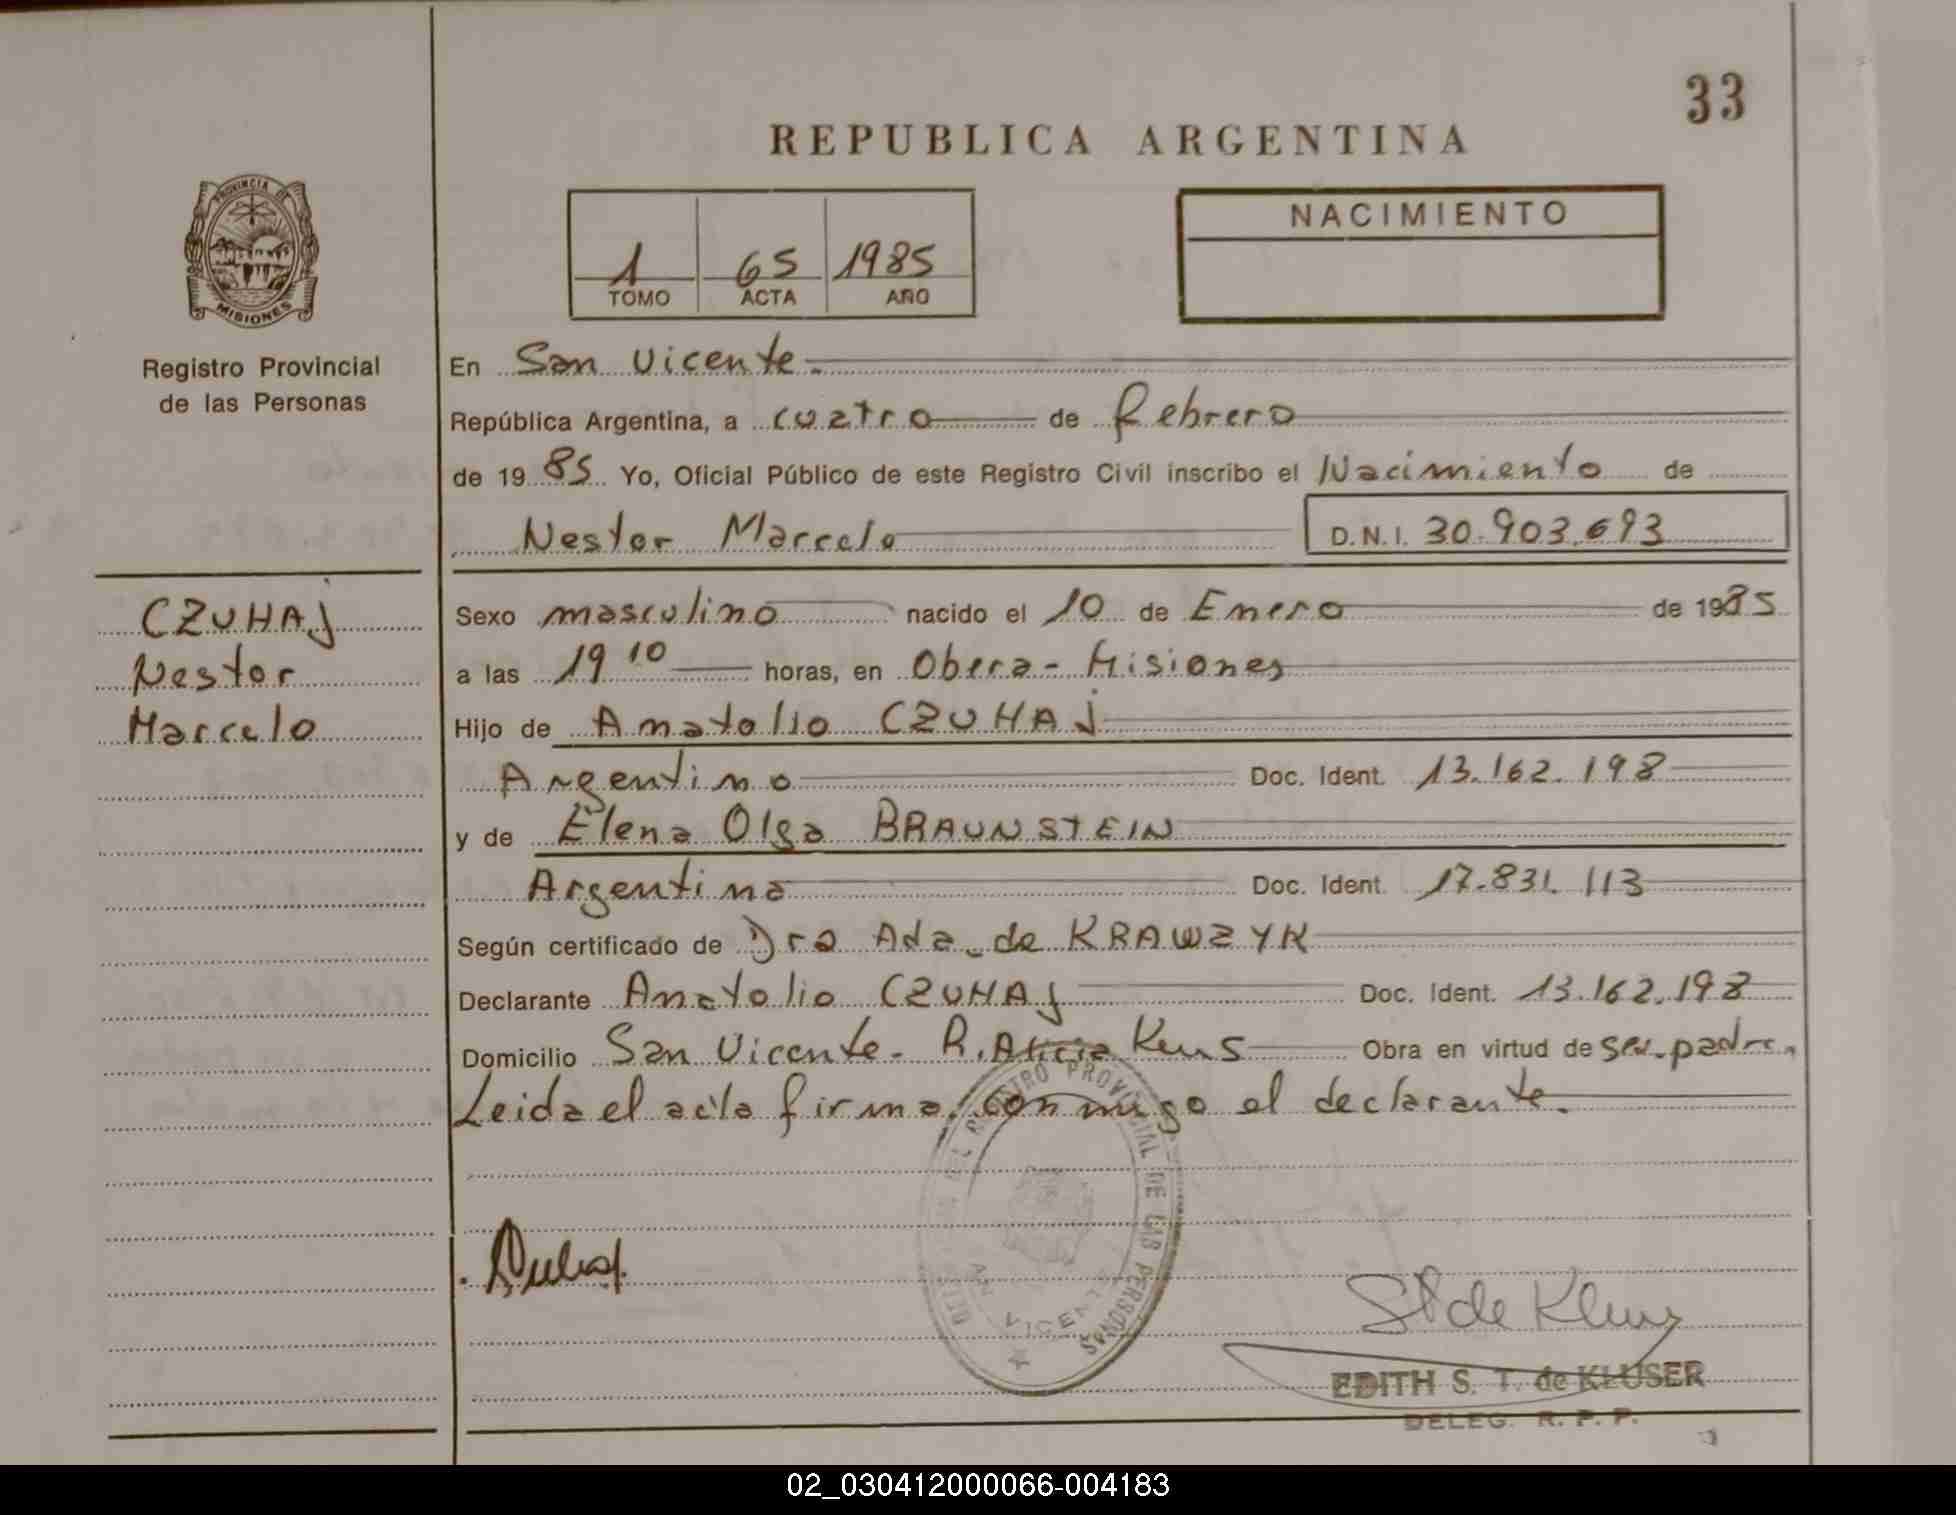 33
REPUBLICA ARGENTINA
PROVINCIA DE
MISIONES
Registro Provincial
de las Personas
1 65 1985
TOMO ACTA AÑO
NACIMIENTO
En San Vicente.
República Argentina, a cuatro de febrero
de 1985 Yo, Oficial Público de este Registro Civil inscribo el Nacimiento de
Nestor Marcelo D.N.I. 30.903.693
CZUHAJ
Nestor
Marcelo
Sexo masculino nacido el 10 de Enero de 1985
a las 19 10 horas, en Obera - Misiones
Hijo de Anatolio CZUHAJ
Argentino Doc. Ident. 13.162.198
y de Elena Olga BRAUNSTEIN
Argentina Doc. Ident. 17.831.113
Según certificado de Dra Ada de KRAWZYK
Declarante Anatolio CZUHAJ Doc. Ident. 13.162.198
Domicilio San Vicente - R. Alicia Obra en virtud de ser padre.
Leida el acta firma conmigo el declarante.
DEL REGISTRO PROVINCIAL DE LAS PERSONAS
VICENTE
EDITH S. T. de KLUSER
DELEG. R. P. P.
02_030412000066-004183